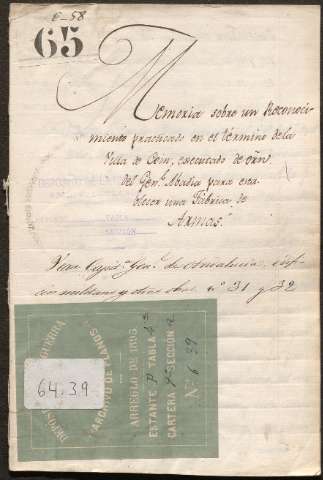 E-58
65
Memoria sobre un Reconoci-
miento practicado en el término de la
Villa de Coin, executado de orn.
del Genl. Abadia para esta-
blecer una Fábrica de
Armas.
TABLA
SECCIÓN
Vease Capia. Genl. de Andalucia,
militares y otras nº 31 y 32
DEPÓSITO GUERRA
ARCHIVO DE PLANOS
ARREGLO DE 1895
ESTANTE P TABLA 4ª
CARTERA 9ª SECCIÓN a
Nº 6 39
64.39